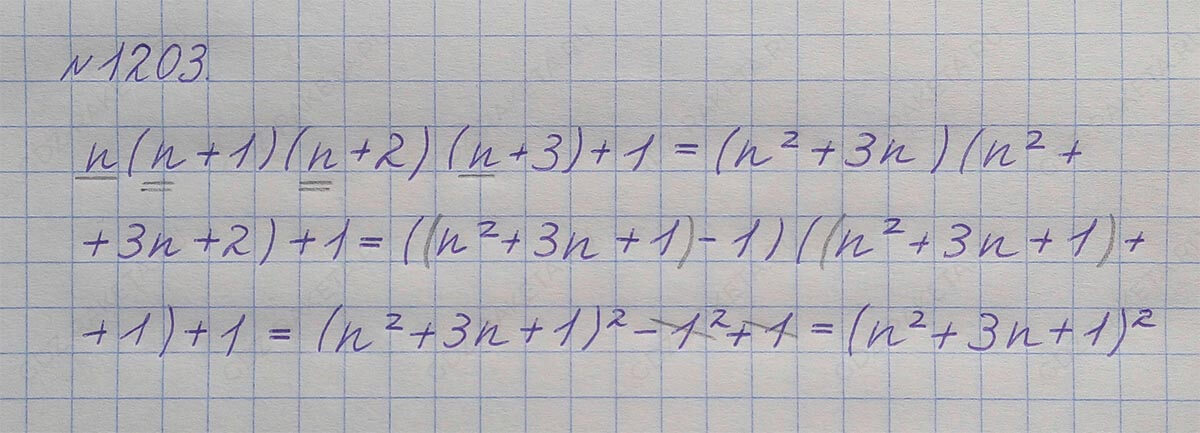 №1203.
n(n+1)(n+2)(n+3)+1=(n²+3n)(n²+
+3n+2)+1=((n²+3n+1)-1)((n²+3n+1)+
+1)+1=(n²+3n+1)²-1²+1=(n²+3n+1)²